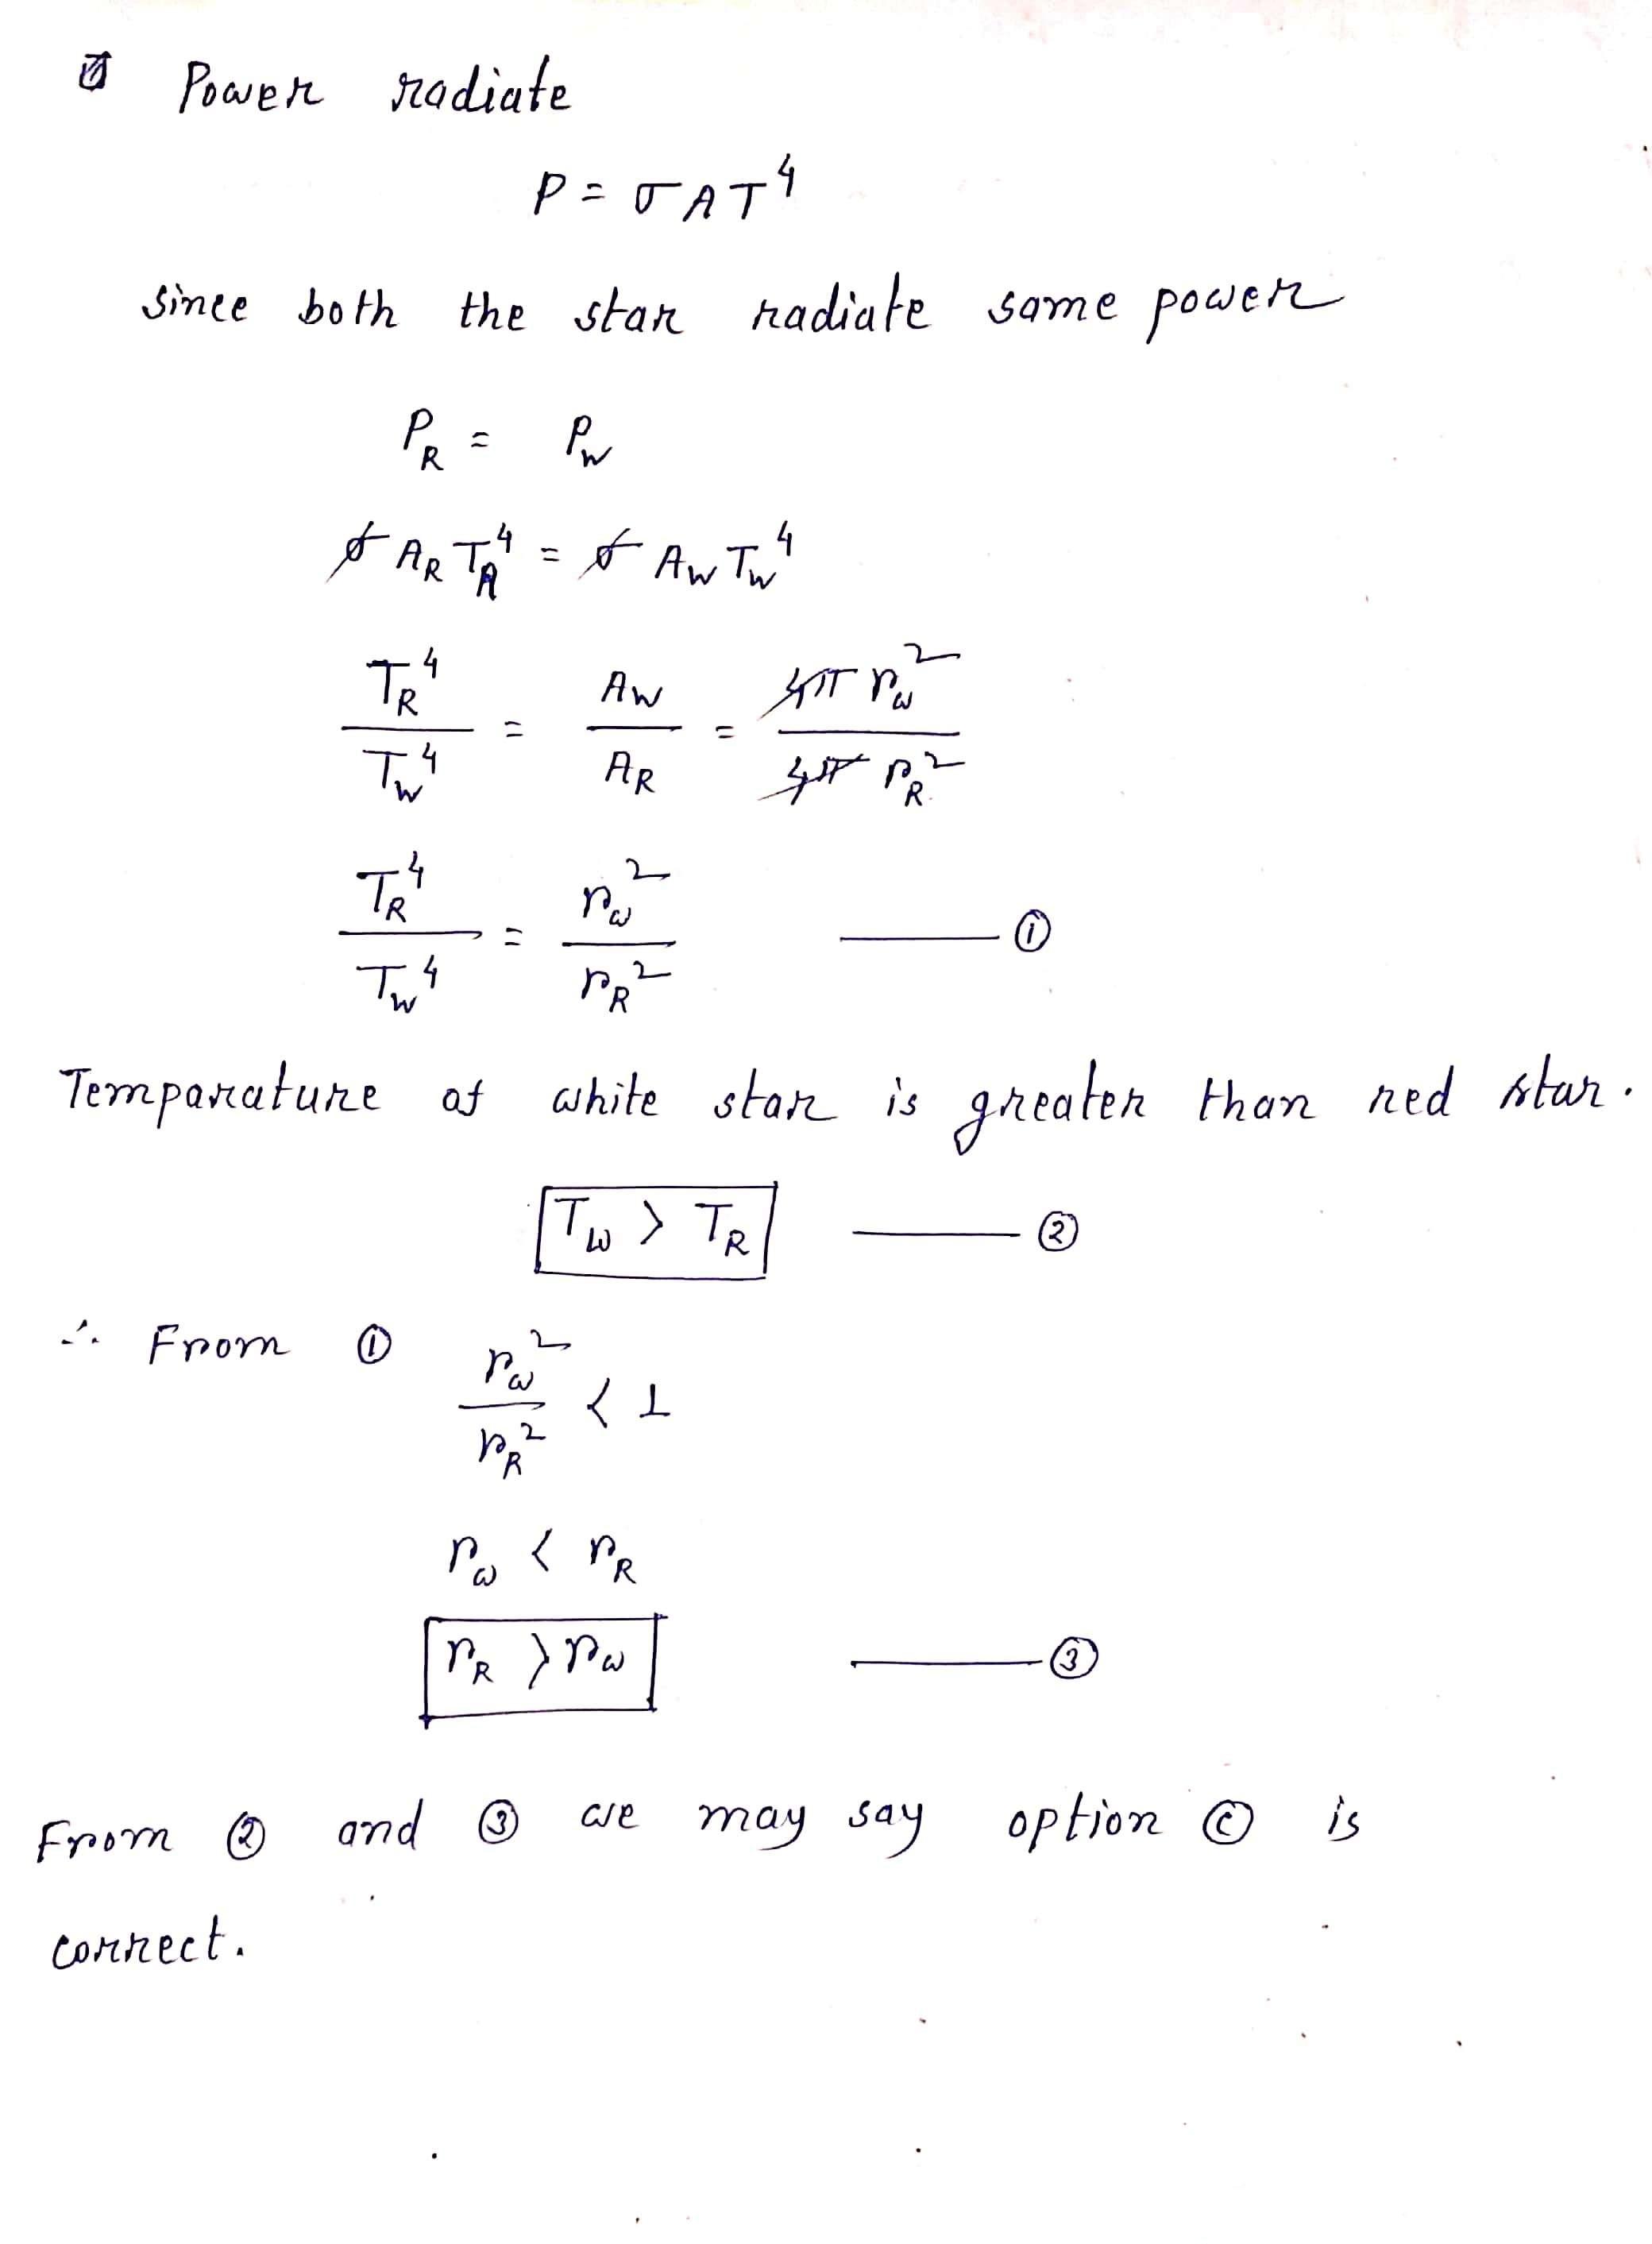 Power radiate
P = σ A T⁴
since both the star radiate same power
P_R = P_W
σ A_R T_A⁴ = σ A_W T_W⁴
T_R⁴ / T_W⁴ = A_W / A_R = 4π r_W² / 4π r_R²
T_R⁴ / T_W⁴ = r_W² / r_R² —— ①
Temparature of white star is greater than red star.
T_W > T_R —— ②
∴ From ① r_W² / r_R² < 1
r_W < r_R
r_R > r_W —— ③
From ② and ③ we may say option ⓒ is
correct.